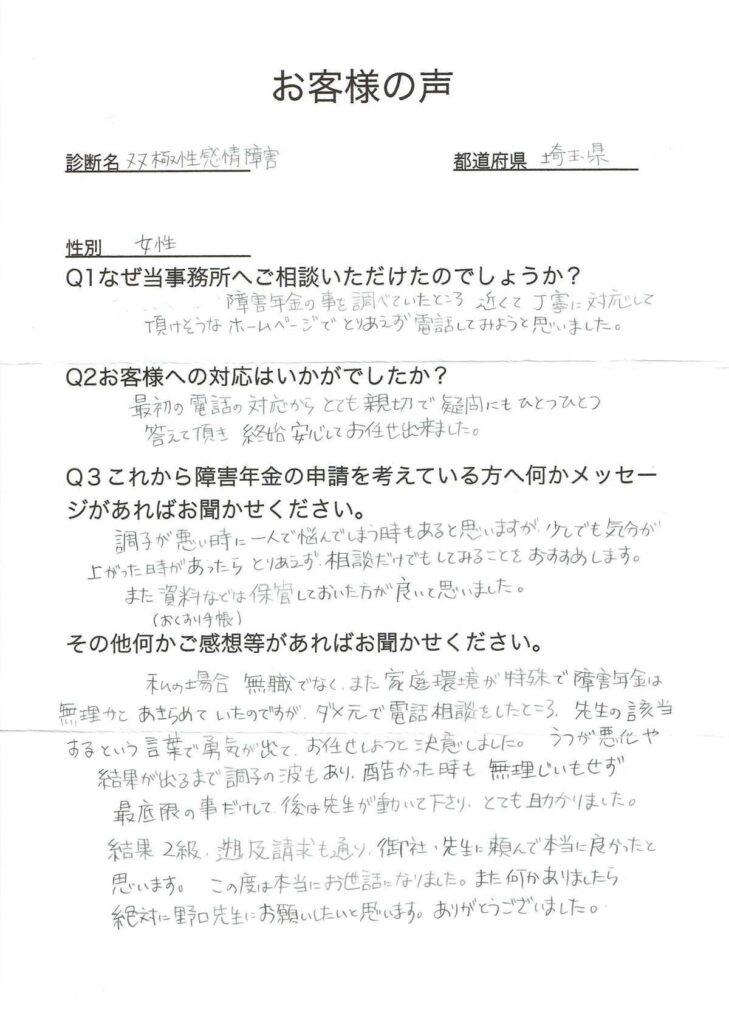 お客様の声
診断名 双極性感情障害
都道府県 埼玉県
性別 女性
Q1なぜ当事務所へご相談いただけたのでしょうか？
障害年金の事を調べていたところ 近くて 丁寧に対応して
頂けそうな ホームページで とりあえず 電話してみようと思いました。
Q2お客様への対応はいかがでしたか？
最初の電話の対応から とても親切で 疑問にもひとつひとつ
答えて頂き 終始 安心してお任せ出来ました。
Q３これから障害年金の申請を考えている方へ何かメッセー
ジがあればお聞かせください。
調子が悪い時に一人で悩んでしまう時もあると思いますが、少しでも気分が
上がった時があったら とりあえず、相談だけでもしてみることを おすすめします。
また 資料などは 保管しておいた方が良いと思いました。
(おくすり手帳)
その他何かご感想等があればお聞かせください。
私の場合 無職でなく、また 家庭環境が特殊で 障害年金は
無理かと あきらめて いたのですが、ダメ元で電話相談をしたところ、先生の該当
するという 言葉で 勇気が出て、お任せしようと 決意しました。 うつが悪化や
結果が出るまで 調子の波もあり、酷かった時も 無理じいもせず
最底限の事だけして、後は先生が動いて下さり、とても助かりました。
結果 2級、遡及請求も通り、御社・先生に頼んで本当に良かったと
思います。 この度は本当にお世話になりました。また何かありましたら
絶対に野口先生にお願いしたいと思います。ありがとうございました。